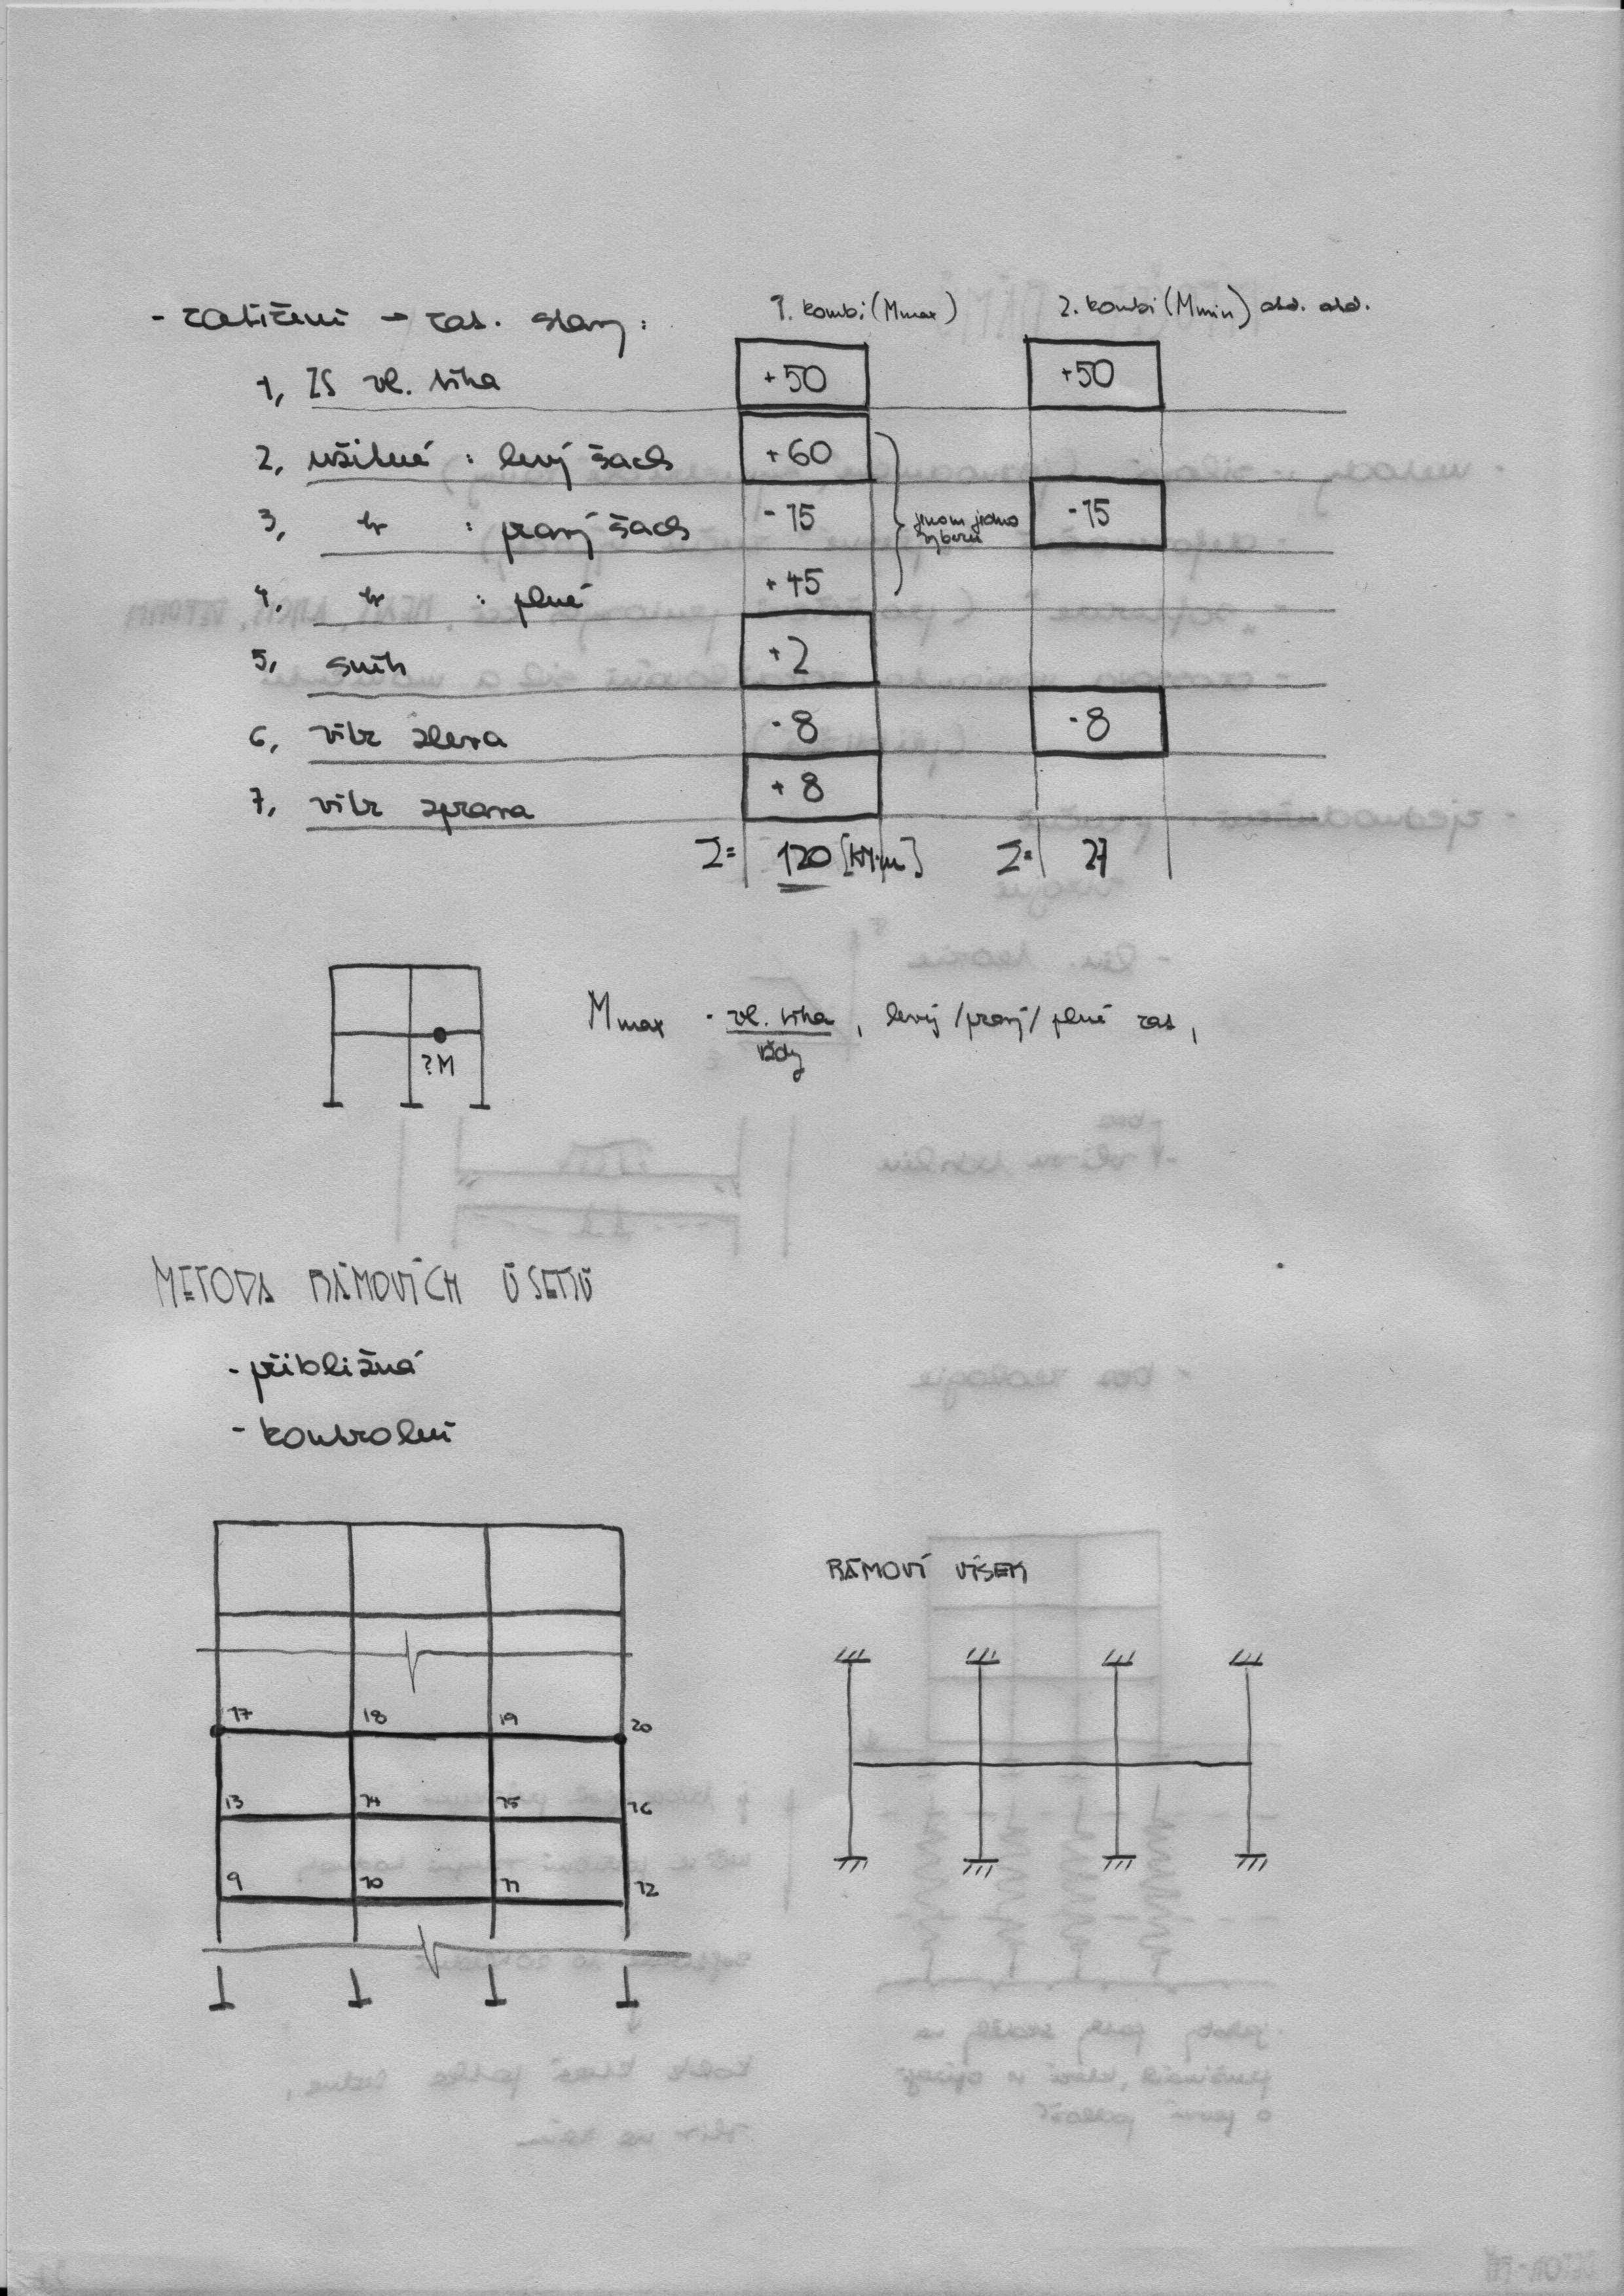 - zatížení → zat. stavy:
1. kombi (Mmax)
2. kombi (Mmin) atd. atd.
1, ZS vl. tíha +50 +50
2, užitné : levý šach +60
3, -"- : pravý šach -15 -15
jenom jedno vyberu
4, -"- : plné +45
5, sníh +2
6, vítr zleva -8 -8
7, vítr zprava +8
Σ= 120 [kN·m] Σ= 27
?M
Mmax - vl. tíha, levý/pravý/plné zat,
vždy
METODA RÁMOVÍCH ÚSEKŮ
- přibližná
- kontrolní
RÁMOVÍ VÝSEK
17 18 19 20
13 14 15 16
9 10 11 12